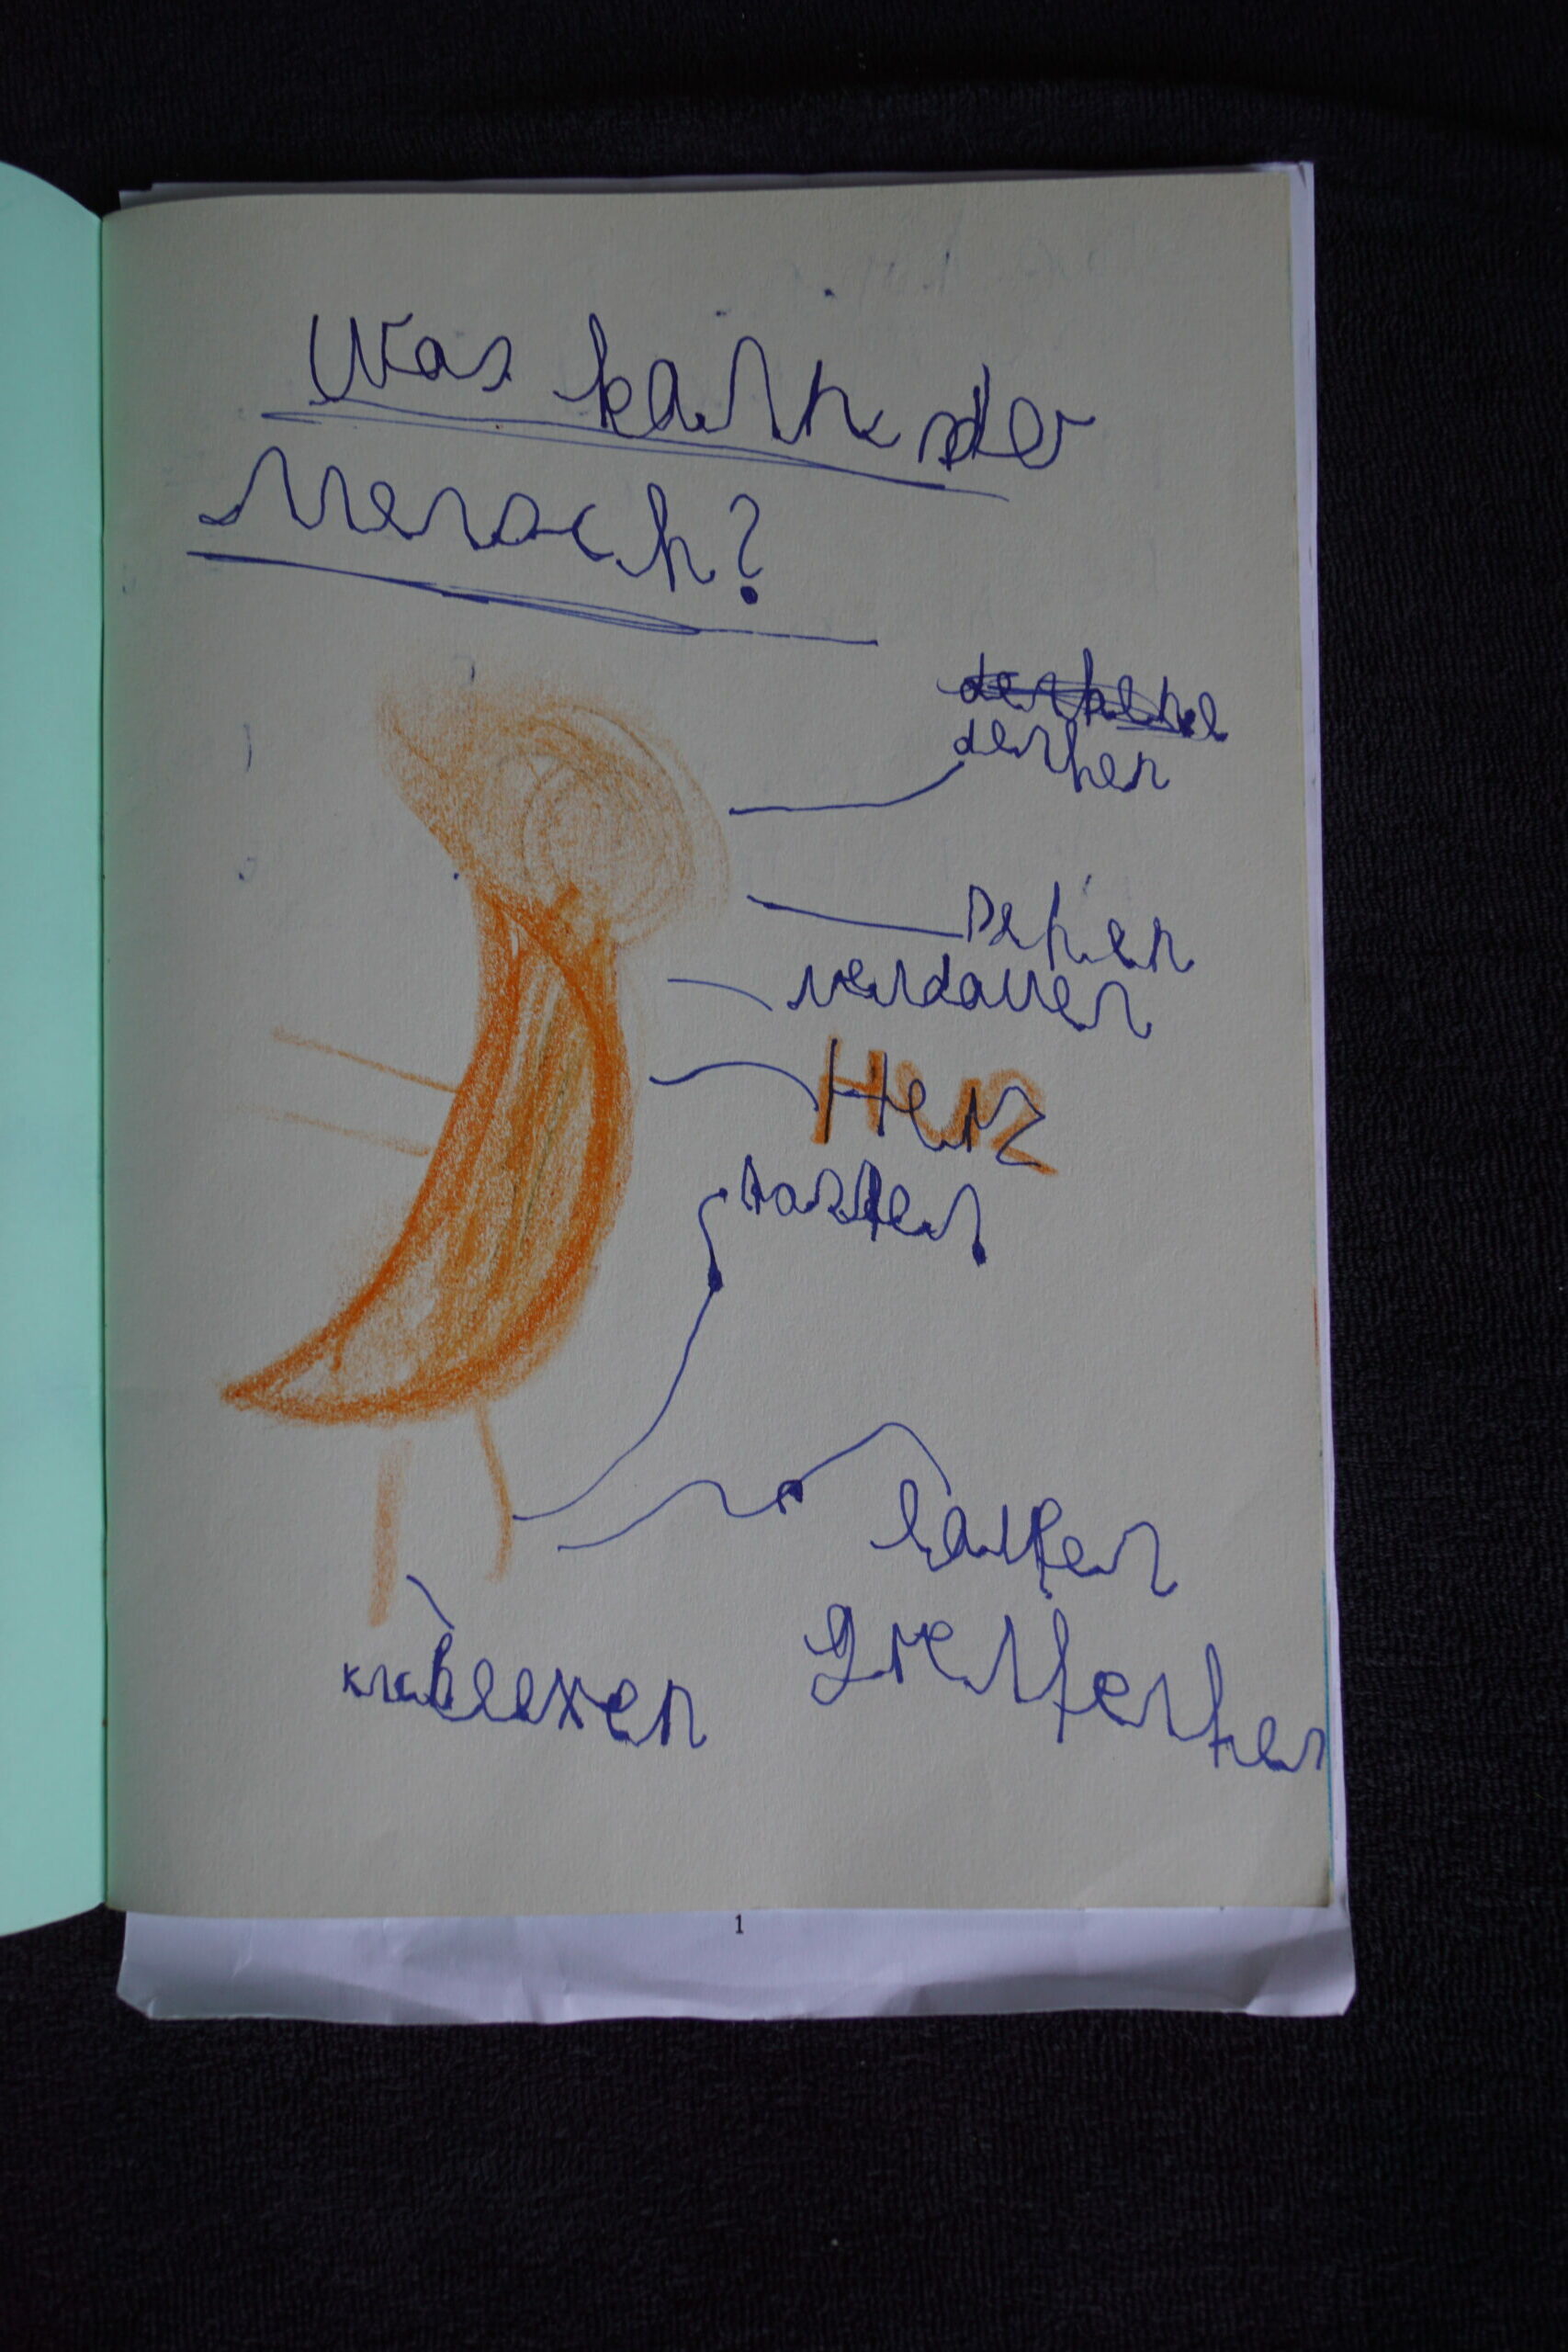 Was kann der
Mensch?
denken
Sehen
verdauen
Herz
tasten
laufen
greifen
1